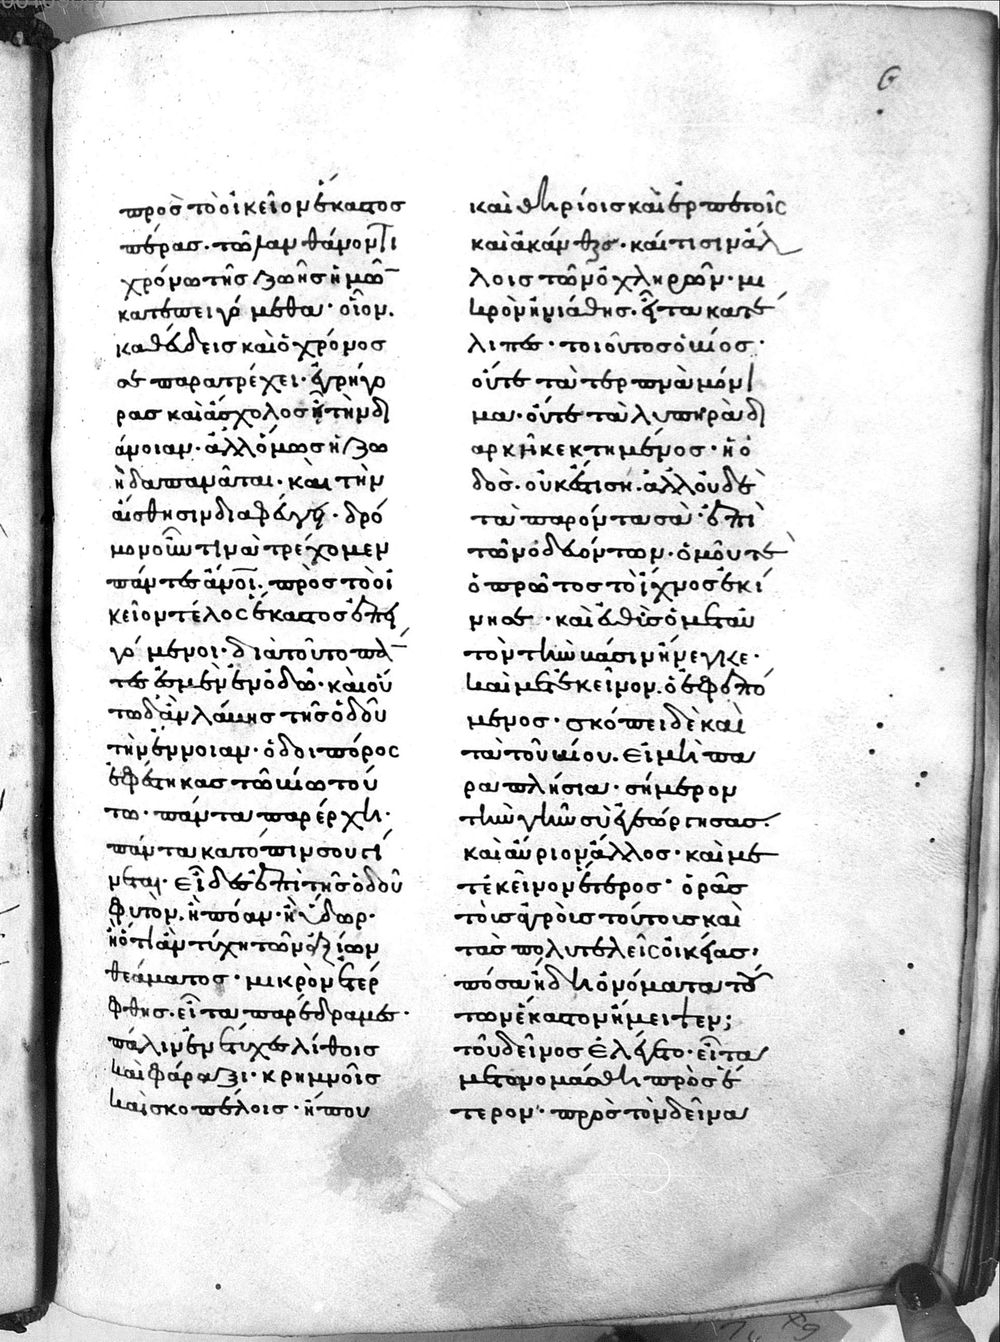 6
πρὸς τὸ οἰκεῖον ἕκαστος
πέρας· τῷ λανθάνοντι
χρόνω τῆς ζωῆς ἡμῶ
κατεπειγόμεθα· οἷον.
καθεύδεις καὶ ὁ χρόνος
σε παρατρέχει· ἐγρήγο
ρας καὶ ἄσχολος ἦ τὴν δι
άνοιαν· ἀλλ' ὅμως ἡ ζω
ὴ δαπανᾶται· κἂν τὴν
αἴσθησιν διαφεύγη· δρό
μον οὖν τινὰ τρέχομεν
πάντες ἄνοι· πρὸς τὸ οἰ
κεῖον τέλος ἕκαστος ἐπει
γόμενοι· διὰ τοῦτο πάν
τες ἐσμὲν ἐν ὁδῶ· καὶ οὕ
τω δ' ἂν λάβης τῆς ὁδοῦ
τὴν ἔννοιαν· ὁδοιπόρος
ἐφέστηκας τῶ βίω τού
τω· πάντα παρέρχεται·
πάντα κατόπιν σου γί
νεται· εἶδες ἐπὶ τῆς ὁδοῦ
φυτὸν· ἢ πόαν· ἢ ὕδωρ·
ἢ ὅτι ἂν τύχη τῶν ἀξίων
θεάματος· μικρὸν ἐτέρ
φθης· εἶτα παρέδραμες·
πάλιν ἐνέτυχες λίθοις
καὶ φάραγξι· κρημνοῖς
καὶ σκοπέλοις· ἤπου
καὶ θηρίοις καὶ ἑρπετοῖς
καὶ ἀκάνθαις· καί τισιν ἄλ
λοις τῶν ὀχληρῶν· μι
κρὸν ἠνιάθης· εἶτα κατέ
λιπες· τοιοῦτος ὁ βίος·
οὔτε τὰ τερπνὰ μόνι
μα· οὔτε τὰ λυπηρὰ δι
αρκῆ κεκτημένος· ἡ ὁ
δὸς· οὐκ ἔτι σή· ἀλλ' οὐδὲ
τὰ παρόντα σὰ· ἐπὶ
τῶν ὁδευόντων· ὁμοῦ τε
ὁ πρῶτος τὸ ἴχνος ἐκί
νησε· καὶ εὐθὺς ὁ μετ' αὐ
τὸν τὴν βάσιν ἤνεγκε·
καὶ μετ' ἐκεῖνον· ὁ ἐφεπό
μενος· σκόπει δὲ καὶ
τὰ τοῦ βίου· εἰ μὴ πα
ραπλήσια· σήμερον
τὴν γῆν σὺ ἐγεώργησας·
καὶ αὔριον ἄλλος· καὶ με
τ' ἐκεῖνον ἕτερος· ὁρᾶς
τοὺς ἀγροὺς τούτους καὶ
τὰς πολυτελεῖς οἰκίας·
πόσα ἤδη ὀνόματα τού
των ἕκαστον ἤμειψεν;
τοῦ δεῖνος ἐλέγετο· εἶτα
μετωνομάσθη πρὸς ἕ
τερον· πρὸς τὸν δεῖνα